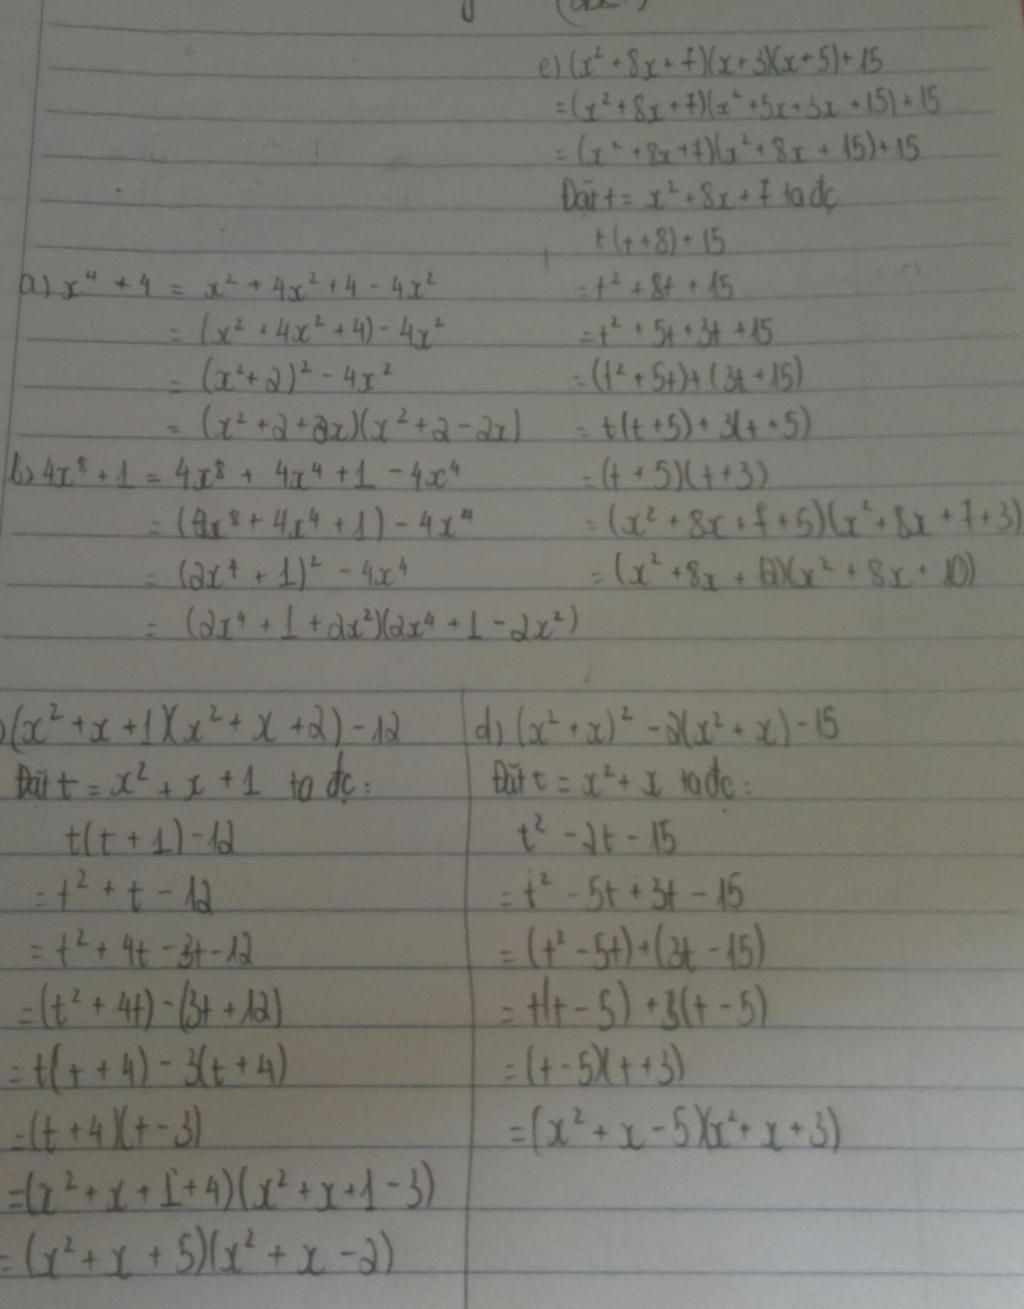 e) (x² + 8x + 7)(x + 3)(x + 5) + 15
= (x² + 8x + 7)(x² + 5x + 3x + 15) + 15
= (x² + 8x + 7)(x² + 8x + 15) + 15
Đặt t = x² + 8x + 7 ta đc
t(t + 8) + 15
= t² + 8t + 15
= t² + 5t + 3t + 15
= (t² + 5t) + (3t + 15)
= t(t + 5) + 3(t + 5)
= (t + 5)(t + 3)
= (x² + 8x + 7 + 5)(x² + 8x + 7 + 3)
= (x² + 8x + 12)(x² + 8x + 10)
a) x⁴ + 4 = x² + 4x² + 4 - 4x²
= (x² + 4x² + 4) - 4x²
= (x² + 2)² - 4x²
= (x² + 2 + 2x)(x² + 2 - 2x)
b) 4x⁸ + 1 = 4x⁸ + 4x⁴ + 1 - 4x⁴
= (4x⁸ + 4x⁴ + 1) - 4x⁴
= (2x⁴ + 1)² - 4x⁴
= (2x⁴ + 1 + 2x²)(2x⁴ + 1 - 2x²)
) (x² + x + 1)(x² + x + 2) - 12
Đặt t = x² + x + 1 ta đc :
t(t + 1) - 12
= t² + t - 12
= t² + 4t - 3t - 12
= (t² + 4t) - (3t + 12)
= t(t + 4) - 3(t + 4)
= (t + 4)(t - 3)
= (x² + x + 1 + 4)(x² + x + 1 - 3)
= (x² + x + 5)(x² + x - 2)
d) (x² + x)² - 2(x² + x) - 15
Đặt t = x² + x ta đc :
t² - 2t - 15
= t² - 5t + 3t - 15
= (t² - 5t) + (3t - 15)
= t(t - 5) + 3(t - 5)
= (t - 5)(t + 3)
= (x² + x - 5)(x² + x + 3)